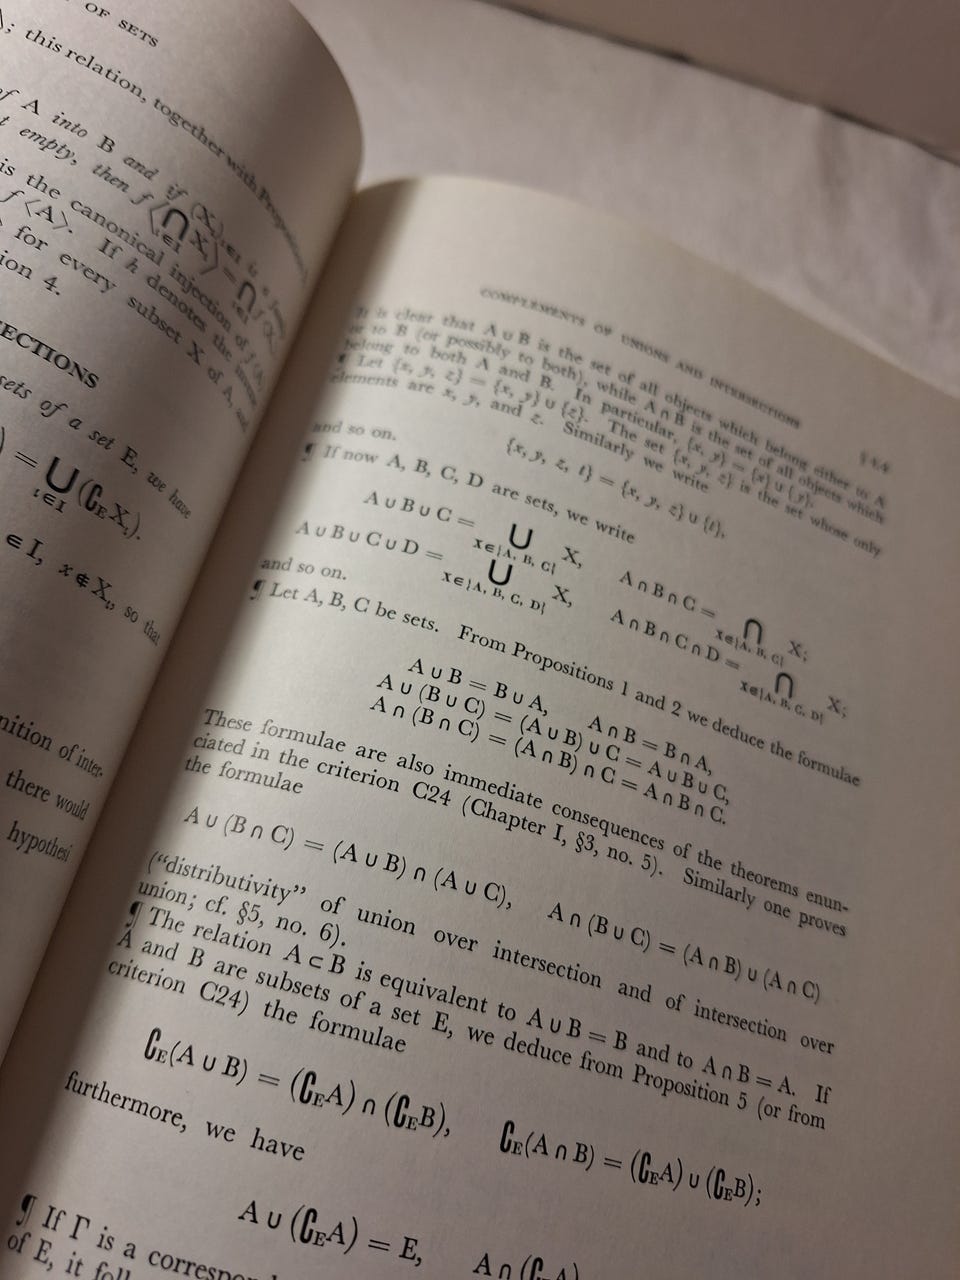 OF SETS
; this relation, together with Proposition
of A into B and if (X
t empty, then f⟨⋂ X
ι∈I
is the canonical injection of
f⟨A⟩. If h denotes the inverse
for every subset X of A, and
ion 4.
ECTIONS
sets of a set E, we have
) = ⋃ (∁_E X_ι).
ι∈I
∈ I, x ∉ X_ι, so that
nition of inter-
there would
hypothesi
COMPLEMENTS OF UNIONS AND INTERSECTIONS
It is clear that A ∪ B is the set of all objects which belong either to A
or to B (or possibly to both), while A ∩ B is the set of all objects which
belong to both A and B. In particular, {x, y} = {x} ∪ {y}.
¶ Let {x, y, z} = {x, y} ∪ {z}. The set {x, y, z} is the set whose only
elements are x, y, and z. Similarly we write
{x, y, z, t} = {x, y, z} ∪ {t},
and so on.
¶ If now A, B, C, D are sets, we write
A ∪ B ∪ C = ⋃ X, A ∩ B ∩ C = ⋂ X;
X∈{A, B, C} X∈{A, B, C}
A ∪ B ∪ C ∪ D = ⋃ X, A ∩ B ∩ C ∩ D = ⋂ X;
X∈{A, B, C, D} X∈{A, B, C, D}
and so on.
¶ Let A, B, C be sets. From Propositions 1 and 2 we deduce the formulae
A ∪ B = B ∪ A, A ∩ B = B ∩ A,
A ∪ (B ∪ C) = (A ∪ B) ∪ C = A ∪ B ∪ C,
A ∩ (B ∩ C) = (A ∩ B) ∩ C = A ∩ B ∩ C.
These formulae are also immediate consequences of the theorems enun-
ciated in the criterion C24 (Chapter I, §3, no. 5). Similarly one proves
the formulae
A ∪ (B ∩ C) = (A ∪ B) ∩ (A ∪ C), A ∩ (B ∪ C) = (A ∩ B) ∪ (A ∩ C)
(“distributivity” of union over intersection and of intersection over
union; cf. §5, no. 6).
¶ The relation A ⊂ B is equivalent to A ∪ B = B and to A ∩ B = A. If
A and B are subsets of a set E, we deduce from Proposition 5 (or from
criterion C24) the formulae
∁_E(A ∪ B) = (∁_E A) ∩ (∁_E B), ∁_E(A ∩ B) = (∁_E A) ∪ (∁_E B);
furthermore, we have
A ∪ (∁_E A) = E, A ∩ (∁_E A)
¶ If Γ is a correspond
of E, it foll